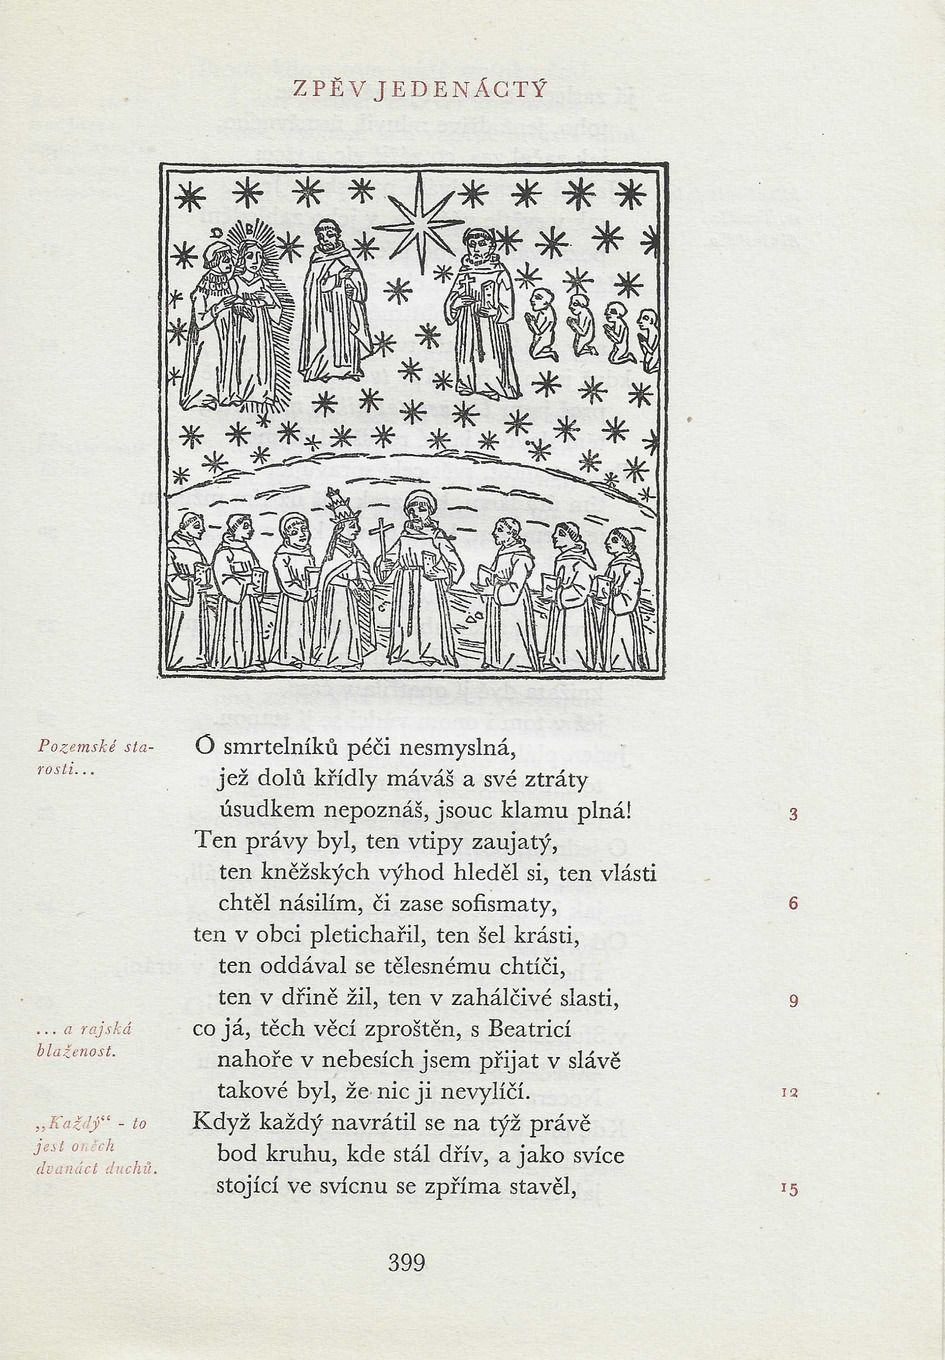 ZPĚV JEDENÁCTÝ
D
B
Pozemské sta-
rosti...
Ó smrtelníků péči nesmyslná,
jež dolů křídly máváš a své ztráty
úsudkem nepoznáš, jsouc klamu plná!
3
Ten právy byl, ten vtipy zaujatý,
ten kněžských výhod hleděl si, ten vlásti
chtěl násilím, či zase sofismaty,
6
ten v obci pletichařil, ten šel krásti,
ten oddával se tělesnému chtíči,
ten v dřině žil, ten v zahálčivé slasti,
9
... a rajská
blaženost.
co já, těch věcí zproštěn, s Beatricí
nahoře v nebesích jsem přijat v slávě
takové byl, že nic ji nevylíčí.
12
„Každý“ - to
jest oněch
dvanáct duchů.
Když každý navrátil se na týž právě
bod kruhu, kde stál dřív, a jako svíce
stojící ve svícnu se zpříma stavěl,
15
399